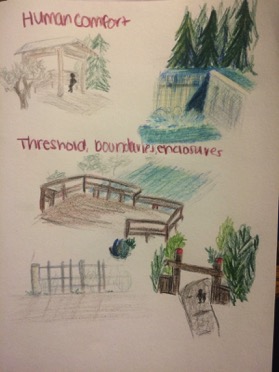 Human comfort
Threshold, boundaries, enclosures